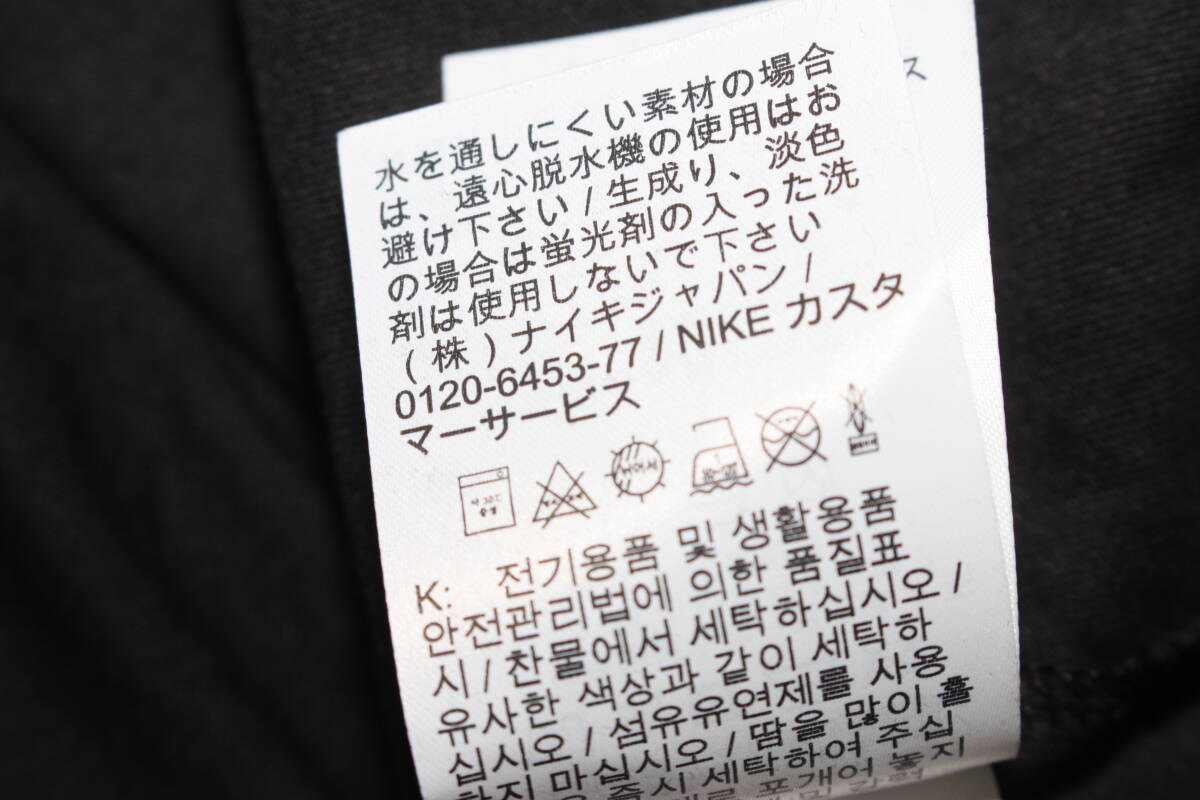 ス
水を通しにくい素材の場合
は、遠心脱水機の使用はお
避け下さい / 生成り、淡色
の場合は蛍光剤の入った洗
剤は使用しないで下さい
(株)ナイキジャパン /
0120-6453-77 / NIKE カスタ
マーサービス
K: 전기용품 및 생활용품
안전관리법에 의한 품질표
시 / 찬물에서 세탁하십시오 /
유사한 색상과 같이 세탁하
십시오 / 섬유유연제를 사용
하지 마십시오 / 땀을 많이 흘
즉시 세탁하여 주십
포개어 놓지